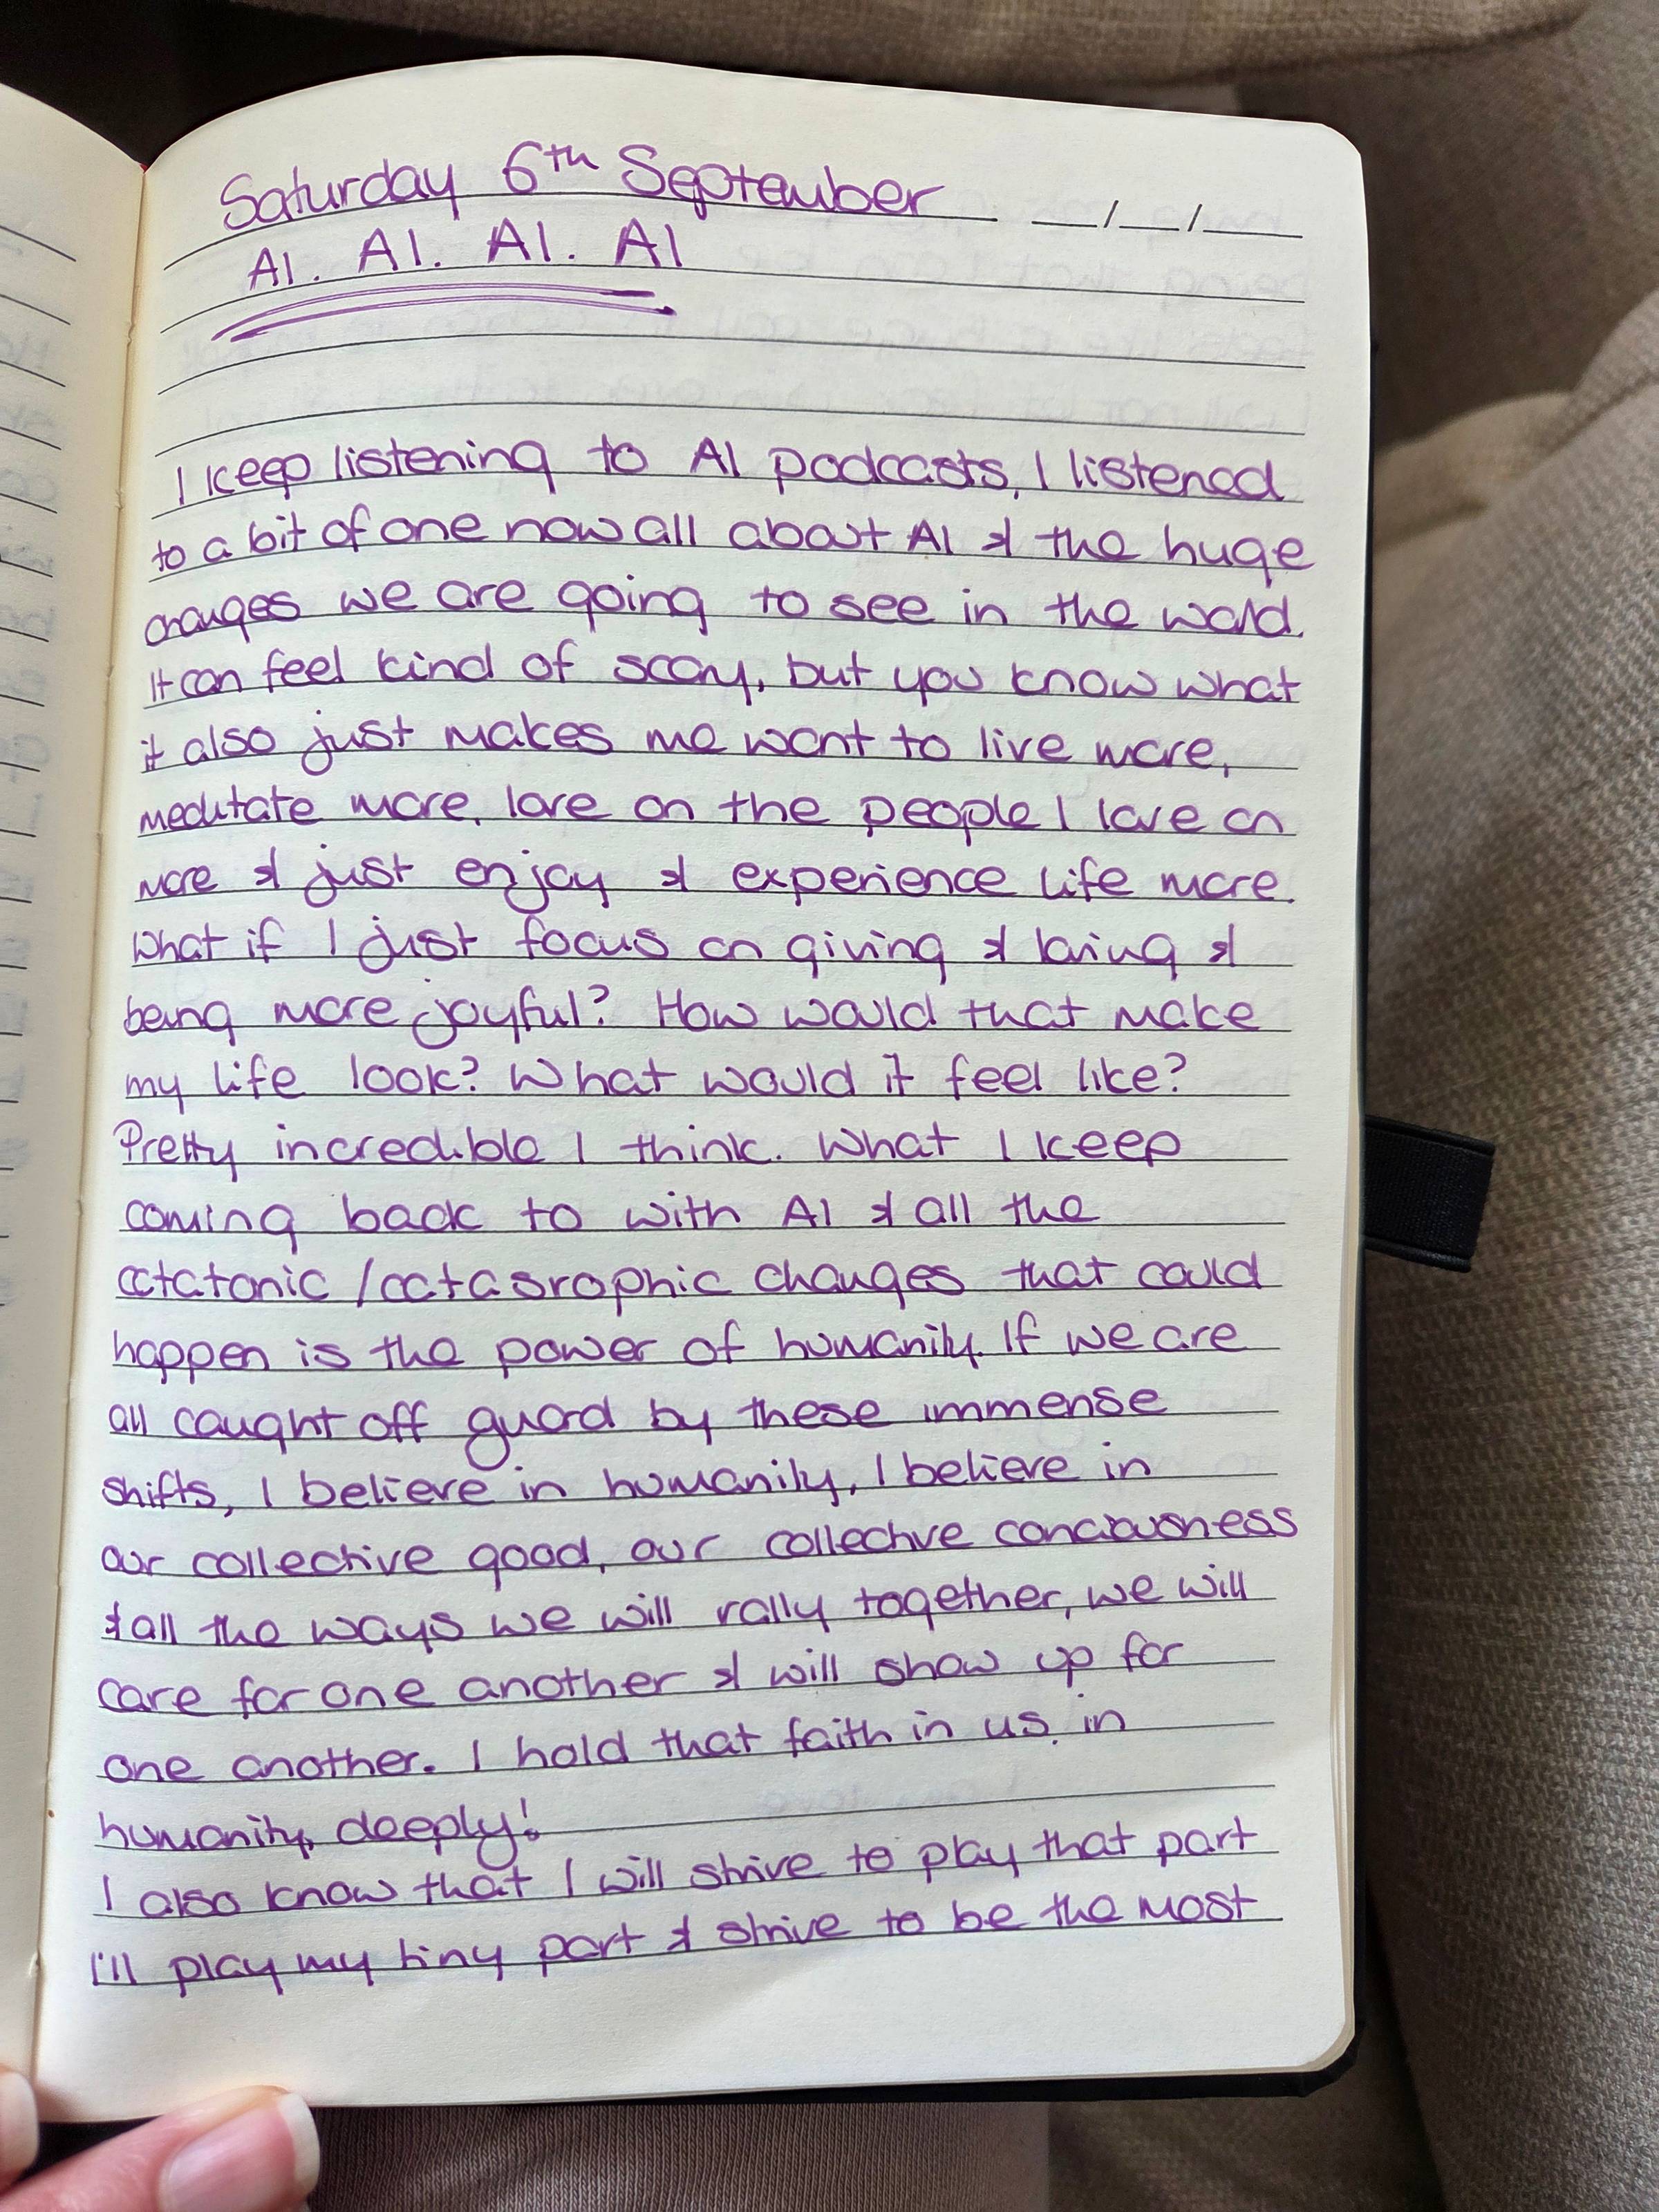 Saturday 6th September
AI. AI. AI. AI
I keep listening to AI podcasts, I listened
to a bit of one now all about AI & the huge
changes we are going to see in the world.
It can feel kind of scary, but you know what
it also just makes me want to live more,
meditate more, love on the people I love on
more & just enjoy & experience life more.
What if I just focus on giving & loving &
being more joyful? How would that make
my life look? What would it feel like?
Pretty incredible I think. What I keep
coming back to with AI & all the
catatonic/catasrophic changes that could
happen is the power of humanity. If we are
all caught off guard by these immense
shifts, I believe in humanity, I believe in
our collective good, our collective conciousness
& all the ways we will rally together, we will
care for one another & will show up for
one another. I hold that faith in us, in
humanity, deeply!
I also know that I will strive to play that part
I'll play my tiny part & strive to be the most